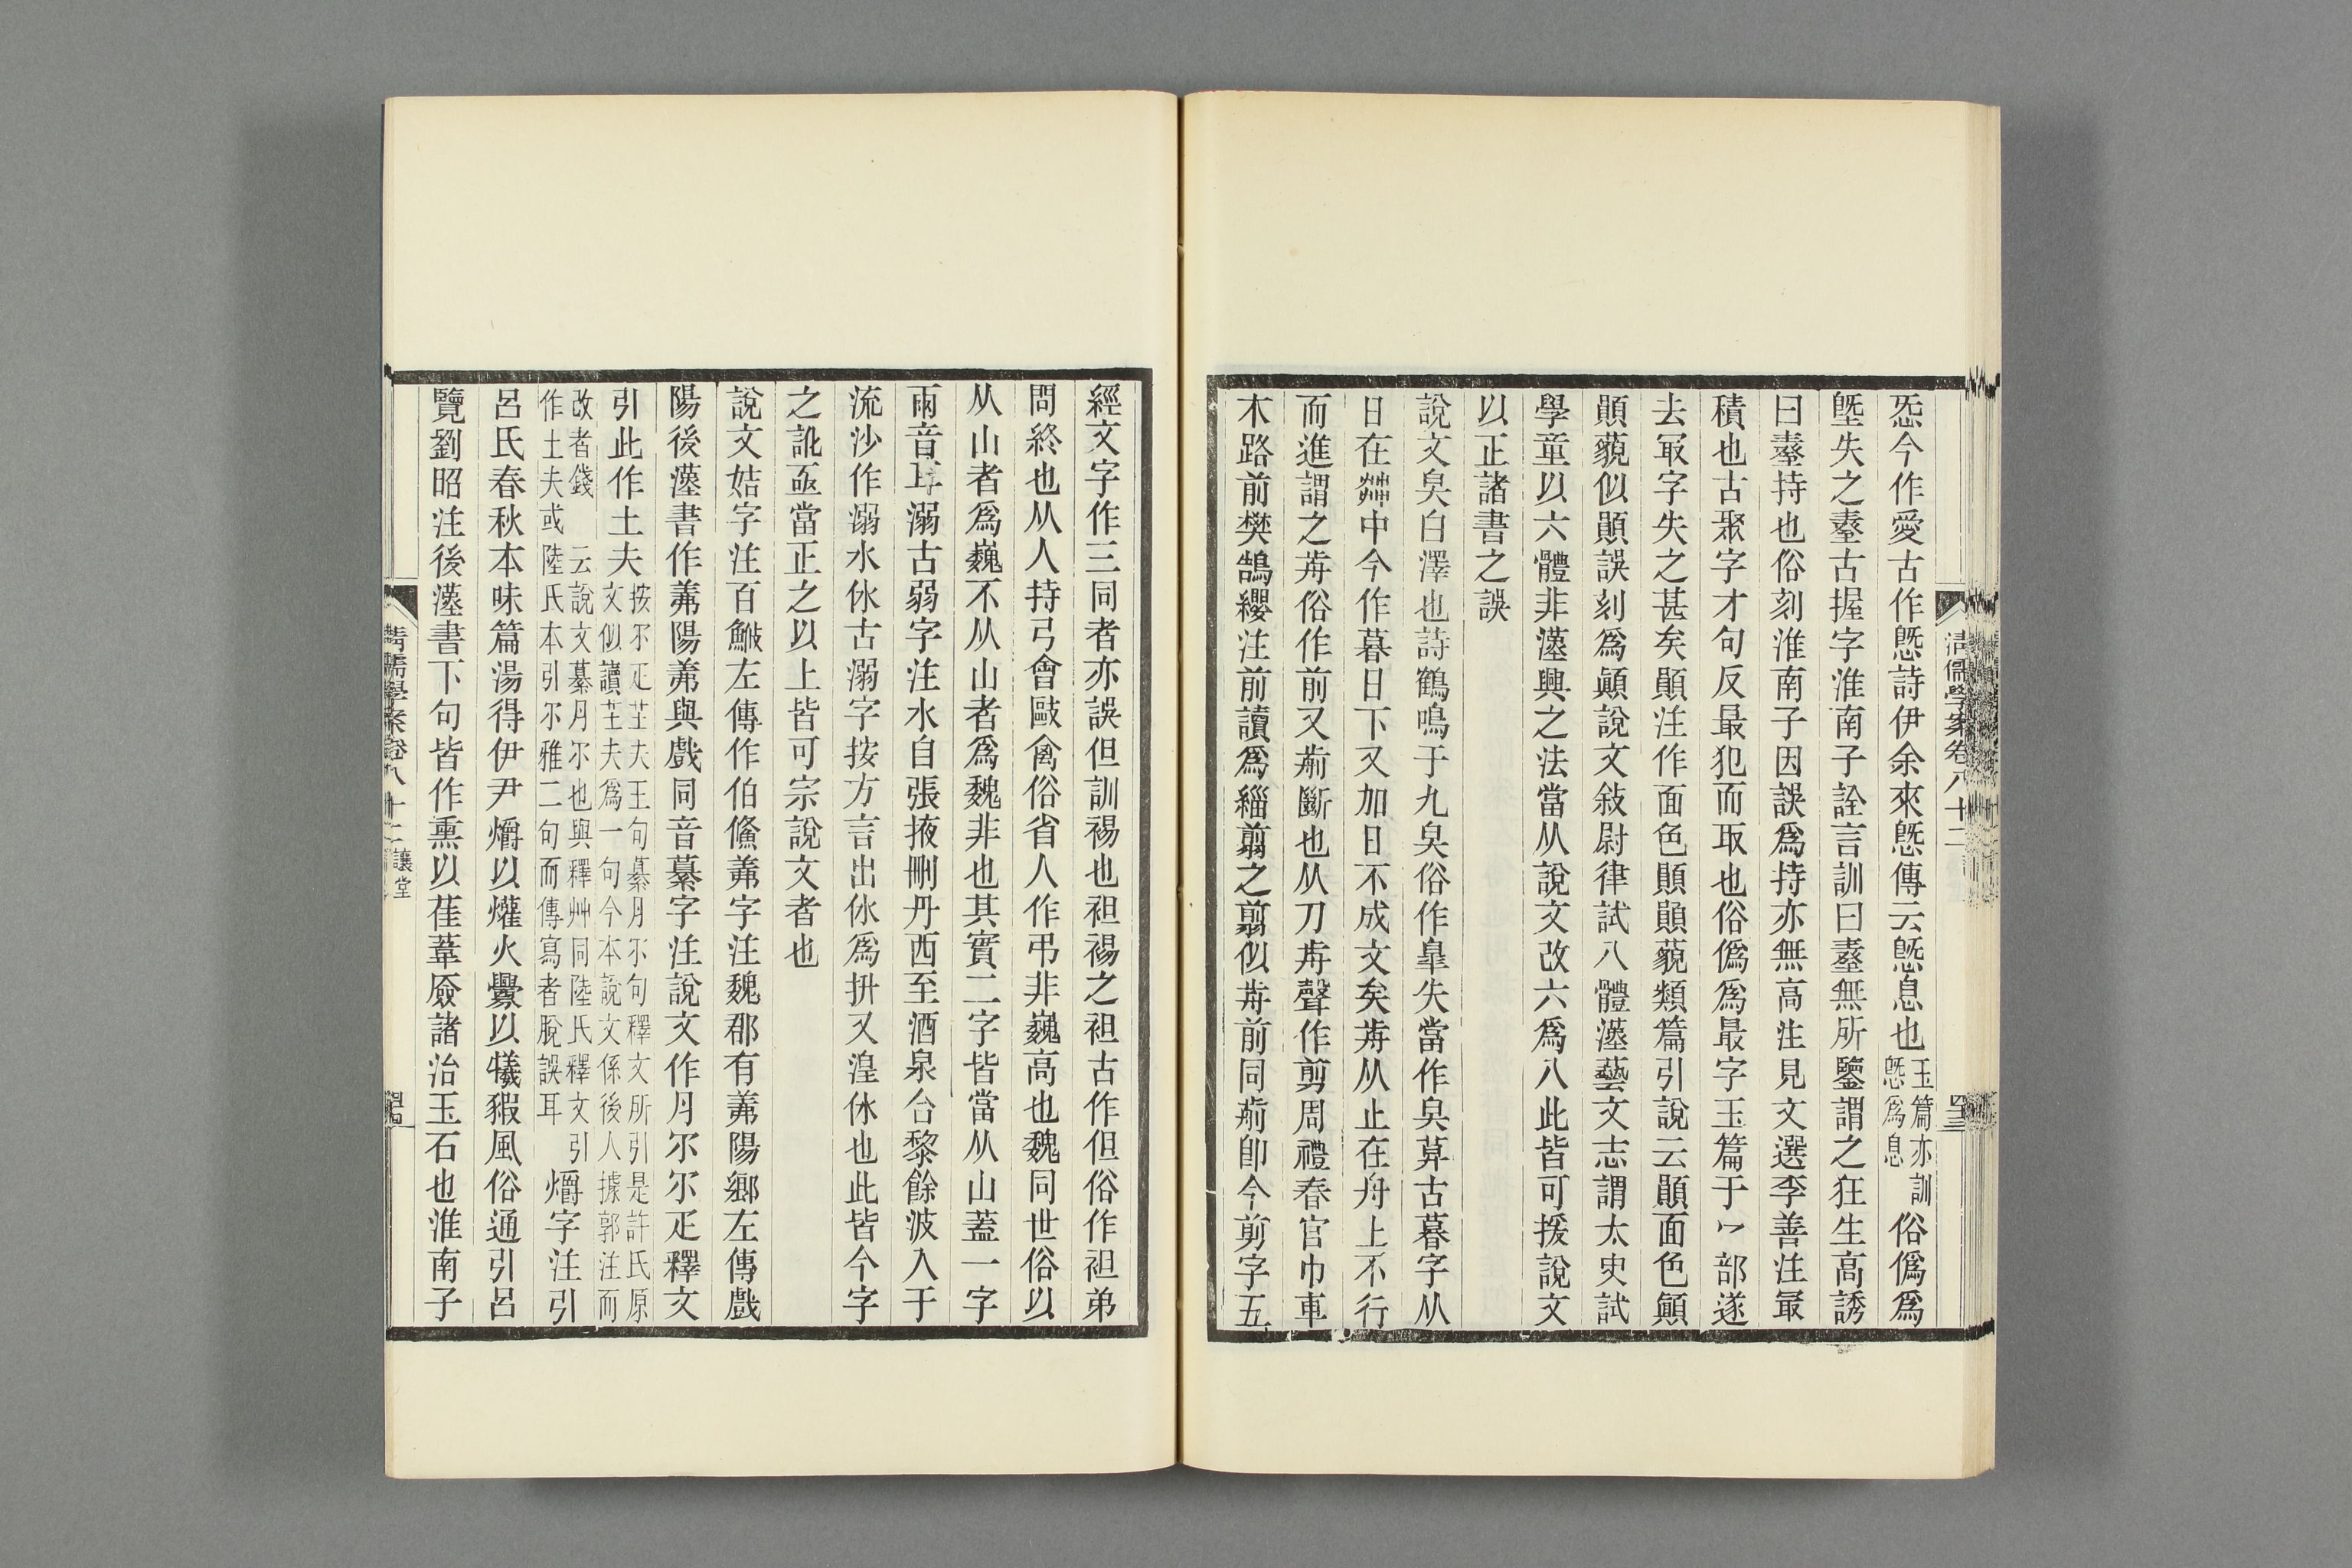 清儒學案卷八十二
四三
㤅今作愛古作㤅詩伊余來塈傳云塈息也玉篇亦訓塈爲息俗僞爲
塈失之𡌴古握字淮南子詮言訓曰𡌴無所鑒謂之狂生高誘
曰𡌴持也俗刻淮南子因誤爲持亦無高注見文選李善注冣
積也古聚字才句反最犯而取也俗僞爲最字玉篇于冖部遂
去冣字失之甚矣顚注作面色顚顚藐類篇引說云顚面色顚
顚藐似顚誤刻爲顚說文敍尉律試八體漢藝文志謂太史試
學童以六體非漢興之法當从說文改六爲八此皆可援說文
以正諸書之誤
說文臭白澤也詩鶴鳴于九臭俗作皐失當作臭莫古暮字从
日在茻中今作暮日下又加日不成文矣歬从止在舟上不行
而進謂之歬俗作前又前斷也从刀歬聲作剪周禮春官巾車
木路前樊鵠纓注前讀爲緇翦之翦似歬前同前卽今剪字五
經文字作三同者亦誤但訓裼也袒裼之袒古作但俗作袒弟
問終也从人持弓會敺禽俗省人作弔非巍高也魏同世俗以
从山者爲巍不从山者爲魏非也其實二字皆當从山蓋一字
兩音耳溺古弱字注水自張掖刪丹西至酒泉合黎餘波入于
流沙作溺水㲻古溺字按方言出㲻爲抍又湟休也此皆今字
之訛亟當正之以上皆可宗說文者也
說文姞字注百鮍左傳作伯鯈羛字注魏郡有羛陽鄉左傳戲
陽後漢書作羛陽羛與戲同音綦字注說文作月尒尒疋釋文
引此作土夫按尒疋芏夫王句綦月尒句釋文所引是許氏原
文似讀芏夫爲一句今本說文係後人據郭注而
改者錢 云說文綦月尒也與釋艸同陸氏釋文引
作土夫或陸氏本引尒雅二句而傳寫者脫誤耳
爝字注引
呂氏春秋本味篇湯得伊尹爝以爟火釁以犧豭風俗通引呂
覽劉昭注後漢書下句皆作熏以萑葦廞諸治玉石也淮南子
清儒學案卷八十二
讓堂